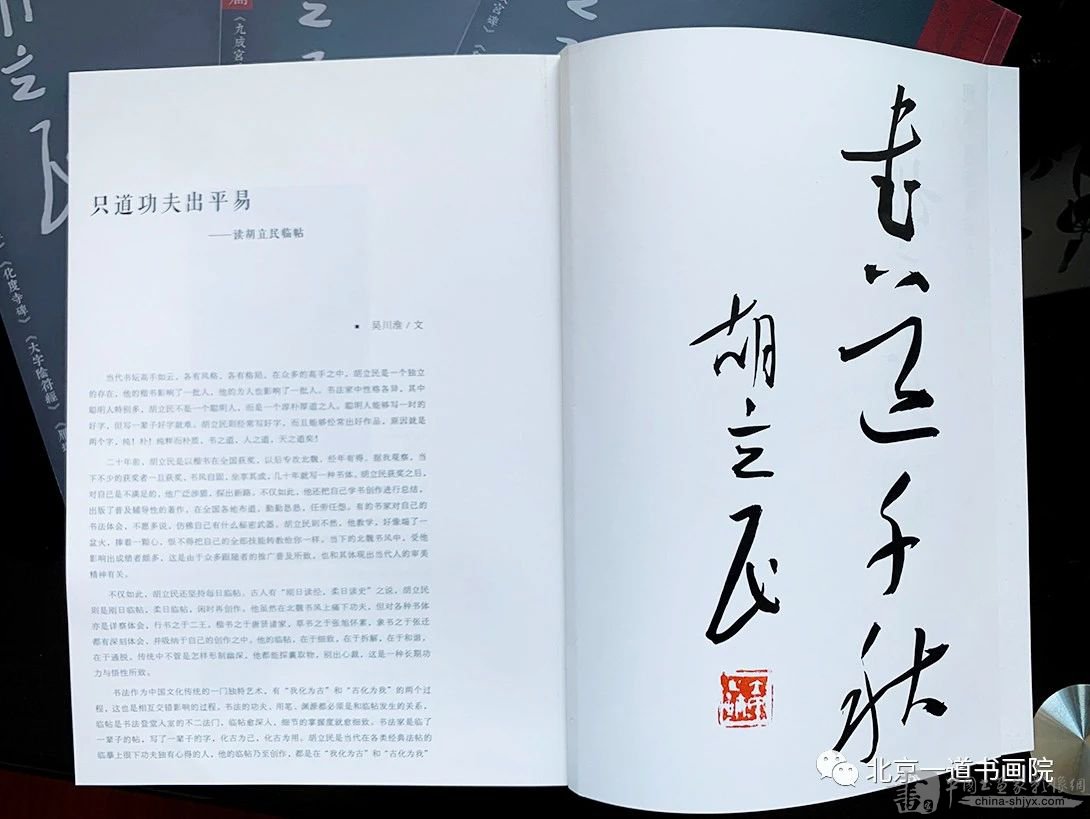 只道功夫出平易
——读胡立民临帖
■ 吴川淮 / 文
当代书坛高手如云，各有风格，各有格局，在众多的高手之中，胡立民是一个独立
的存在，他的楷书影响了一批人，他的为人也影响了一批人。书法家中性格各异，其中
聪明人特别多，胡立民不是一个聪明人，而是一个淳朴厚道之人。聪明人能够写一时的
好字，但写一辈子好字就难。胡立民则经常写好字，而且能够经常出好作品，原因就是
两个字，纯！朴！纯粹而朴质，书之道，人之道，天之道矣！
二十年前，胡立民是以楷书在全国获奖，以后专攻北魏，经年有得。据我观察，当
下不少的获奖者一旦获奖，书风自固，坐享其成，几十年就写一种书体，胡立民获奖之后，
对自己是不满足的，他广泛涉猎，探出新路。不仅如此，他还把自己学书创作进行总结，
出版了普及辅导性的著作，在全国各地布道，勤勤恳恳，任劳任怨。有的书家对自己的
书法体会，不愿多说，仿佛自己有什么秘密武器。胡立民则不然，他教学，好像端了一
盆火，捧着一颗心，恨不得把自己的全部技能转教给你一样。当下的北魏书风中，受他
影响出成绩者颇多，这是由于众多跟随者的推广普及所致，也和其体现出当代人的审美
精神有关。
不仅如此，胡立民还坚持每日临帖。古人有“刚日读经，柔日读史”之说，胡立民
则是刚日临帖，柔日临帖，闲时再创作。他虽然在北魏书风上痛下功夫，但对各种书体
亦是详察体会，行书之于二王，楷书之于唐贤诸家，草书之于张旭怀素，隶书之于张迁
都有深刻体会，并吸纳于自己的创作之中。他的临帖，在于细致，在于拆解，在于和谐，
在于通脱，传统中不管是怎样形制幽深，他都能探囊取物，别出心裁，这是一种长期功
力与悟性所致。
书法作为中国文化传统的一门独特艺术，有“我化为古”和“古化为我”的两个过
程，这也是相互交错影响的过程，书法的功夫、用笔、渊源都必须是和临帖发生的关系，
临帖是书法登堂入室的不二法门，临帖愈深入，细节的掌握度就愈细致。书法家是临了
一辈子的帖，写了一辈子的字，化古为己，化古为用。胡立民是当代在各类经典法帖的
临摹上很下功夫独有心得的人，他的临帖乃至创作，都是在“我化为古”和“古化为我”
千秋
胡立民
《九成宫
《化度寺碑》《大字阴符经》
北京一道书画院
中国书画家影像网
china-shjyx.com